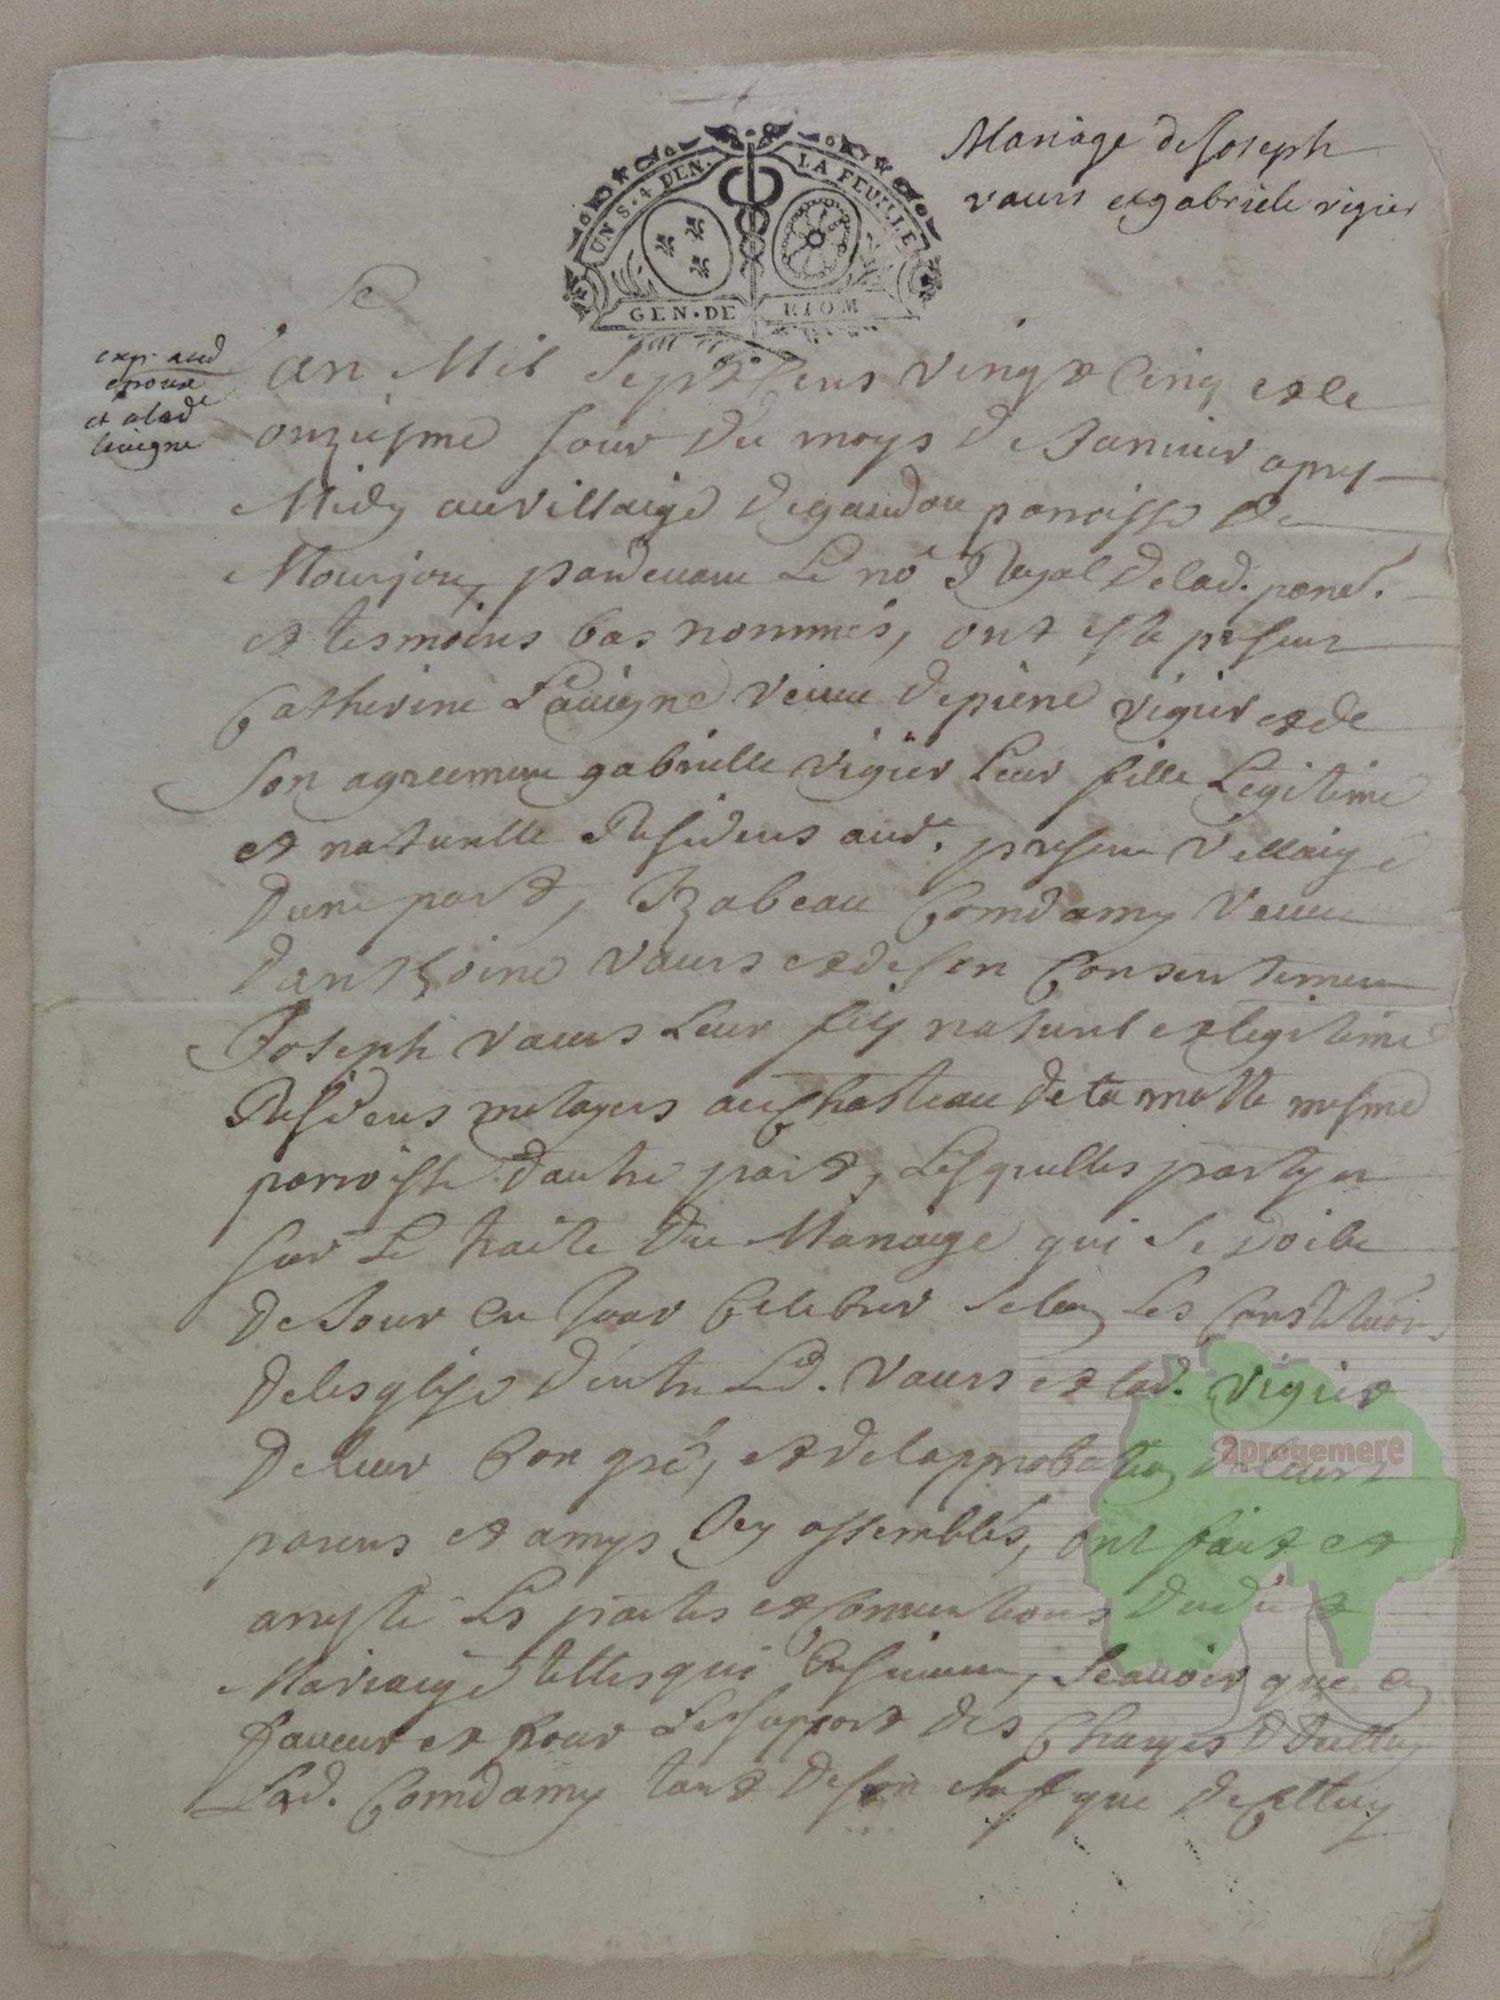 Mariage de Joseph
vaurs et gabriele vigier
UN S. 4 DEN. LA FEUILLE
GEN. DE RIOM
exp. aud
epoux
et a lad
lavigne
Le
an Mil Sept Cens vingt Cinq et le
onziesme Jour du moys de Janvier apres
Midy au villaige de gaudou parroisse de
Mourjou, pardevant Le no.re Royal de lad. parse.
et tesmoins bas nommés, ont esté presens
Catherine Lavigne veuve de pierre vigier et de
son agreement gabrielle vigier Leur fille Legitime
et naturelle Residens aud. presens villaige
dune part, Izabeau Comdamy veuve
danthoine vaurs et de son Consentement
Joseph vaurs Leur fils naturel et legitime
Residens metayers au Chasteau de la motte mesme
parroisse dautre part, Lesquelles partyes
sur Le traite du Mariaige qui se doibt
de Jour en Jour Celebrer selon les Constitutions
de lesglise d'entre Led. vaurs et lad. vigier
de leur bon gré, et de lapprobation de leurs
parens et amys Icy assemblés, ont fait et
arresté Les pactes et Conventions dudit
Mariaige telles qui Ensuivent, Scavoir que en
faveur et pour Le support des Charges dicelluy
Lad. Comdamy tant de son chef que de Celluy